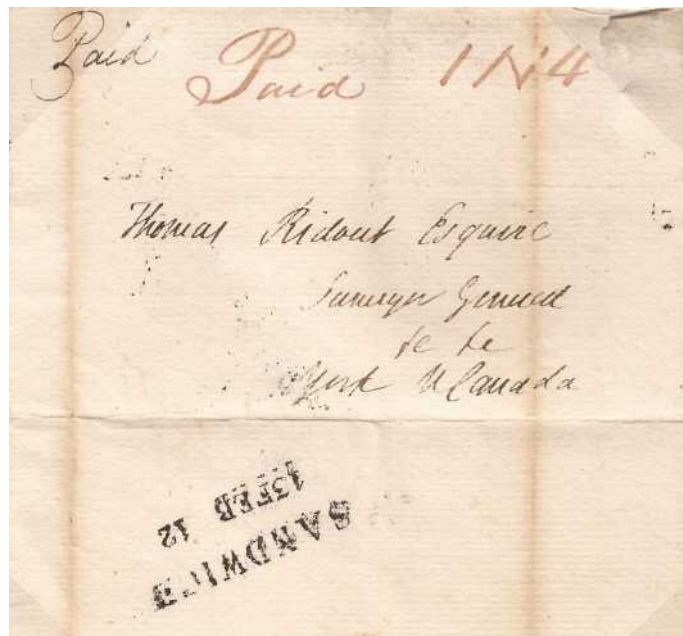 Paid
Paid 1N4
Thomas Ridout Esquire
Surveyor General
&c &c
York U Canada
SANDWICH
13FEB 12